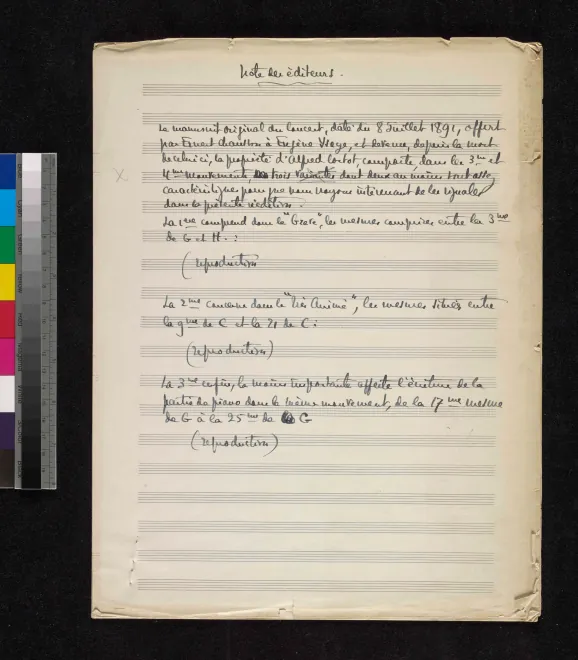 Note des éditeurs.
Le manuscrit original du Concert, daté du 8 Juillet 1891, offert
par Ernest Chausson à Eugène Ysaye, et devenu, depuis la mort
de celui-ci, la propriété d'Alfred Cortot, comporte dans les 3me et
4me mouvements, trois variantes dont deux au moins sont assez
caractéristiques pour que nous croyons intéressant de les signaler
dans la présente réédition.
La 1ere comprend dans le "Grave", les mesures comprises entre la 3me
de G et H. :
(reproduction
La 2me concerne dans le "Très Animé", les mesures situées entre
la 9me de C et la 21 de C :
(reproduction)
La 3me enfin, la moins importante affecte l'écriture de la
partie de piano dans le même mouvement, de la 17me mesure
de G à la 25me de G
(reproduction)